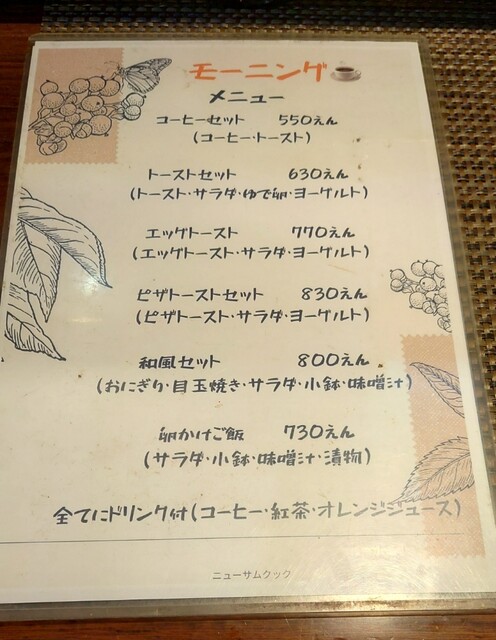 モーニング
メニュー
コーヒーセット 550えん
(コーヒー・トースト)
トーストセット 630えん
(トースト・サラダ・ゆで卵・ヨーグルト)
エッグトースト 770えん
(エッグトースト・サラダ・ヨーグルト)
ピザトーストセット 830えん
(ピザトースト・サラダ・ヨーグルト)
和風セット 800えん
(おにぎり・目玉焼き・サラダ・小鉢・味噌汁)
卵かけご飯 730えん
(サラダ・小鉢・味噌汁・漬物)
全てにドリンク付(コーヒー・紅茶・オレンジジュース)
ニューサムクック